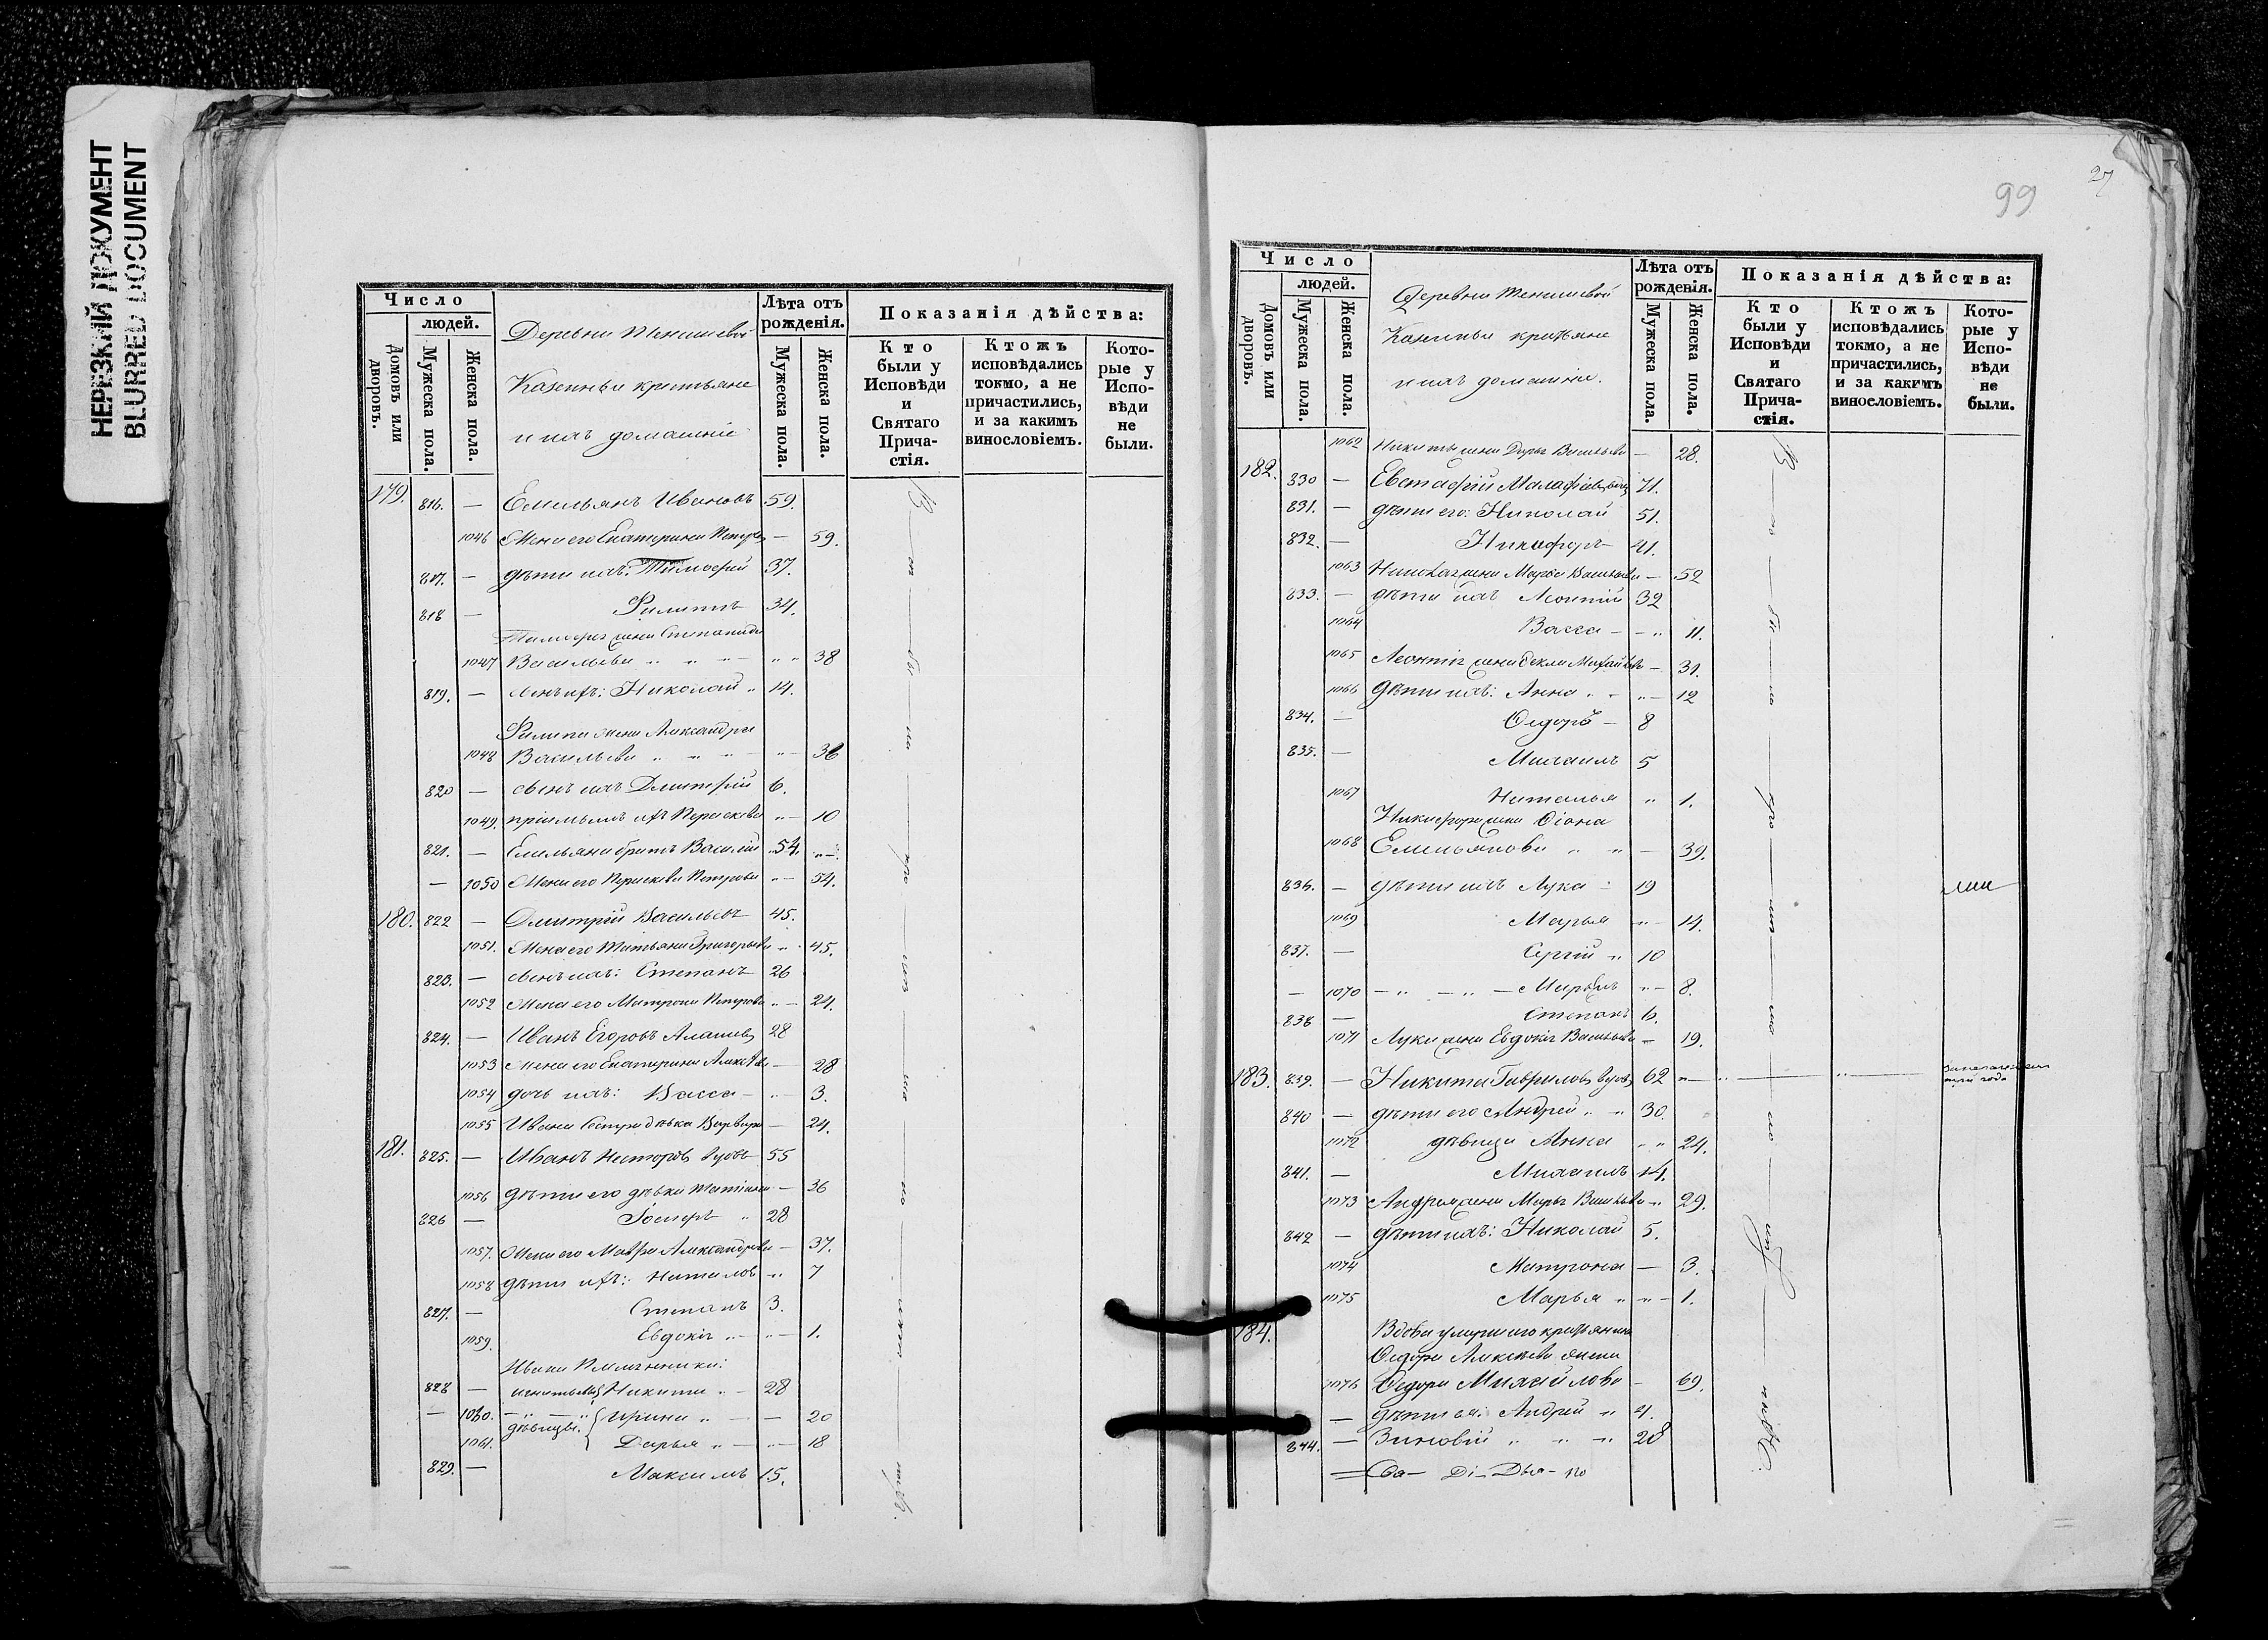 НЕРЕЗКИЙ ДОКУМЕНТ
BLURRED DOCUMENT
Число
людей.
Домовъ или дворовъ.
Мужеска пола.
Женска пола.
Деревни Теншевой
Казенныи кретьяне
и ихъ домашніе
Лѣта отъ рожденія.
Мужеска пола.
Женска пола.
Показанія дѣйства:
Кто были у Исповѣди и Святаго Причастія.
Ктожъ исповѣдались токмо, а не причастились, и за какимъ винословіемъ.
Которые у Исповѣди не были.
179. 816. — Емельянъ Ивановъ 59.
1046 Жена его Екатерина Петрова — 59.
817. — дѣти ихъ: Тимофей 37.
818 — Филиппъ 34.
Тимофея жена Степанида
1047 Васильева 38
819. — сынъ ихъ: Николай 14.
Филипа жена Александра
1048 Васильева 36
820 — сынъ ихъ Дмитрій 6.
1049. ихъ Параскева — 10
821. — Емельяна братъ Василій 54.
— 1050 Жена его Параскева Петрова — 54.
180. 822 — Дмитрій Васильевъ 45.
1051. Жена его Татьяна Григорьева 45.
823. — сынъ ихъ: Степанъ 26
1052 Жена его Матрона Петрова — 24.
824. — Иванъ Егоровъ 28
1053 Жена его Екатерина — 28
1054 дочь ихъ: Васса — 3.
1055 Ивана сестра дѣвка Варвара — 24.
181. 825. — Иванъ Несторовъ вдовъ 55
1056 дѣти его дѣвка Татіана — 36
826 — 28
1057. Жена его Мавра Александрова — 37.
1058 дѣти ихъ: Наталья 7
827. — Степанъ 3.
1059. Евдокія — 1.
Ивана племянники:
828 — Никита 28
— 1060. дѣвицы: Ирина — 20
1061. Дарья — 18
829. — Максимъ 15.
99
27
Число
людей.
Домовъ или дворовъ.
Мужеска пола.
Женска пола.
Деревни Теншевой
Казенныи кретьяне
и ихъ домашніе.
Лѣта отъ рожденія.
Мужеска пола.
Женска пола.
Показанія дѣйства:
Кто были у Исповѣди и Святаго Причастія.
Ктожъ исповѣдались токмо, а не причастились, и за какимъ винословіемъ.
Которые у Исповѣди не были.
1062 Никиты жена Дарья Васильева — 28.
182. 830 — Евстафій вдовъ 71.
831. — дѣти его: Николай 51.
832. — Никифоръ 41.
1063 Николая жена Марфа Васильева — 52
833. — дѣти ихъ Леонтій 32
1064 Васса — 11.
1065 Леонтія жена Фекла Михайлова — 31.
1066 дѣти ихъ: Анна — 12
834. — Ѳедоръ — 8
835. — Михаилъ 5
1067 Наталья 1.
Никифора жена
1068 Емельянова — 39.
836. — дѣти ихъ Лука 19
1069 Марья — 14.
837. — Сергій 10
— 1070 — 8.
838 — Степанъ 6.
1071 Луки жена Евдокія Васильева — 19.
183. 839. — Никита Гавриловъ вдовъ 62
года
840 — дѣти его Андрей 30.
1072 дѣвица Анна 24.
841. — Михаилъ 14.
1073 Андрея жена Марья Васильева 29.
842 — дѣти ихъ: Николай 5.
1074 Матрона — 3.
1075 Марья — 1.
184. Вдова умершаго кретьянина
Ѳедора Алексѣева жена
1076 Михайлова — 69.
— дѣти ея: Андрей 41.
844. — Зиновій 28